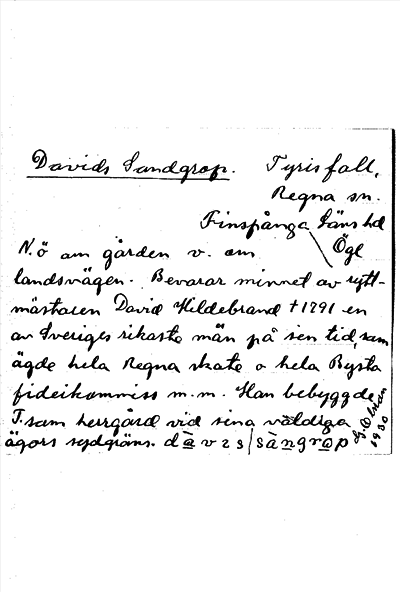 Davids Sandgrop. Tyrisfall,
Regna sn.
Finspånga läns hd
Ögl
N.ö om gården v. om
landsvägen. Bevarar minnet av rytt-
mästaren David Hildebrand †1791 en
av Sveriges rikaste män på sen tid, som
ägde hela Regna skate o hela Bysta
fideikommiss m.m. Han bebyggde
T. som herrgård vid sina väldiga
ägors sydgräns. davzs/sàngrop
1930